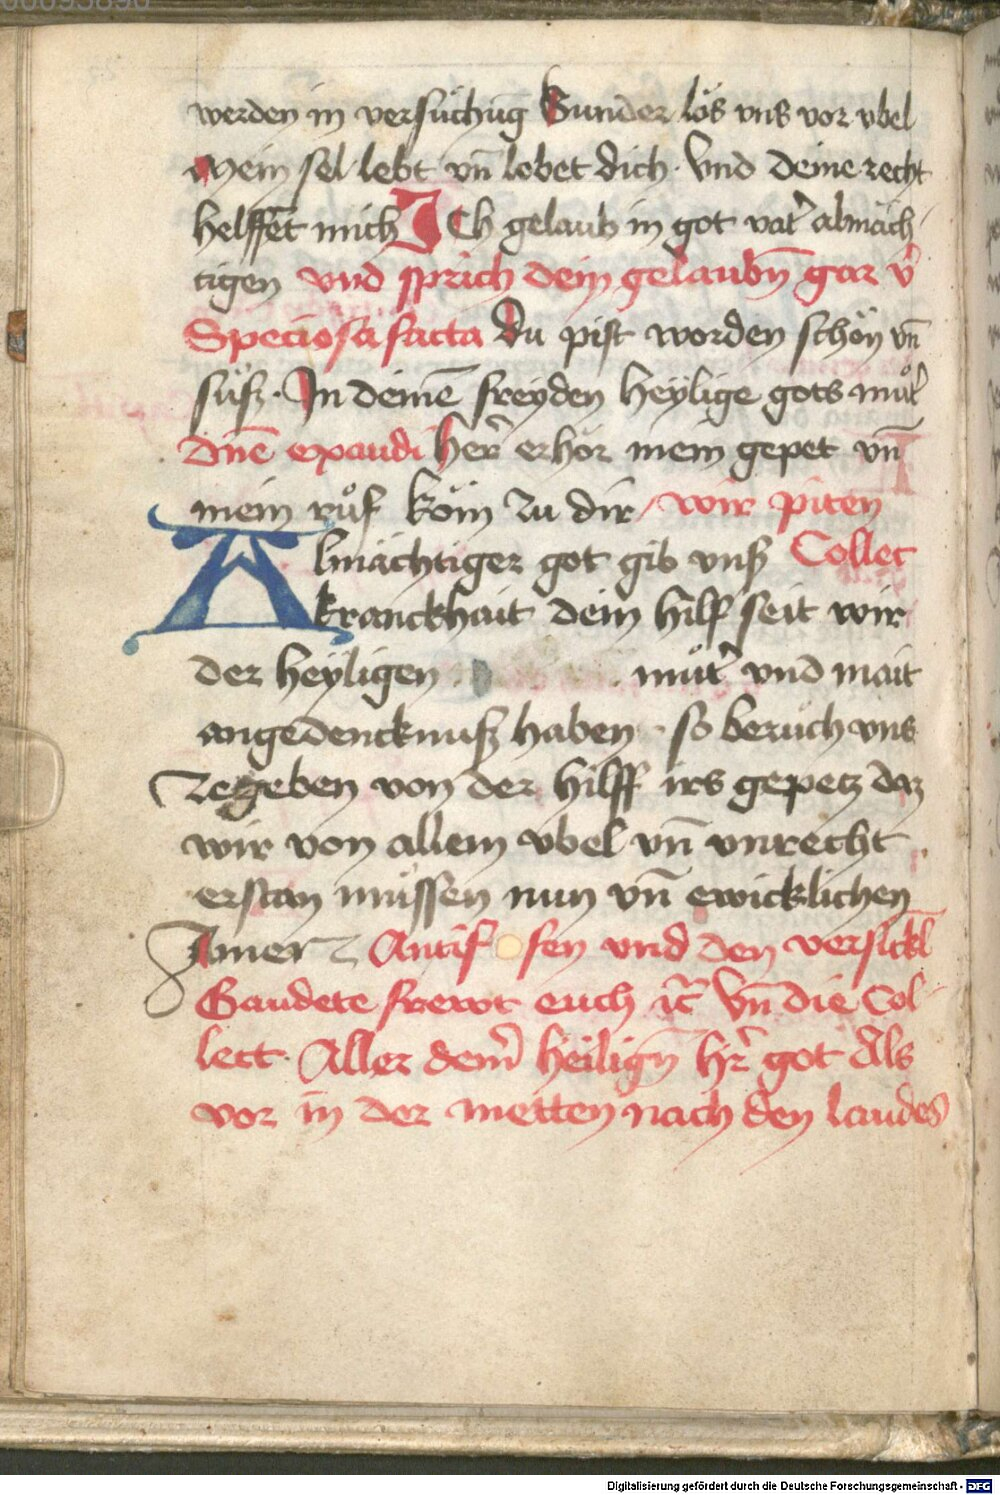 werden in versuͤchūg Sunder loͤs vns vor vbel
Mein sel lebt vn̄ lobet dich · Vnd deine recht
helffēt mich ICh gelaub in got vat̓ almäch⸗
tigen vnd sprich dein gelaubn̄ gar v̓
Speciosa facta du pist worden schön vn̄
suͤsz · In deinē freyden heylige gots muͦt̓
Dn̄e exaudi her̓ erhör mein gepet vn̄
mein ruͦf köm zu dir / wir piten
Almächtiger got gib vnsz Collet
kranckhait dein hilf seit wir
der heyligen . . muͦt̓ vnd mait
angedencknusz haben · so beruͤch vns
zegeben von der hilff irs gepetz daz
wir von allem vbel vn̄ vnrecht
erstan muͤssen nun vn̄ ewicklichen
Amen Antif sen vnd den versickl̄
Gaudete frewt euch ꝛc̄ Vn̄ die Col⸗
lect · Aller dein̓ heilign̄ hr̓ got Als
vor in der metten nach den laudes
Digitalisierung gefördert durch die Deutsche Forschungsgemeinschaft - DFG